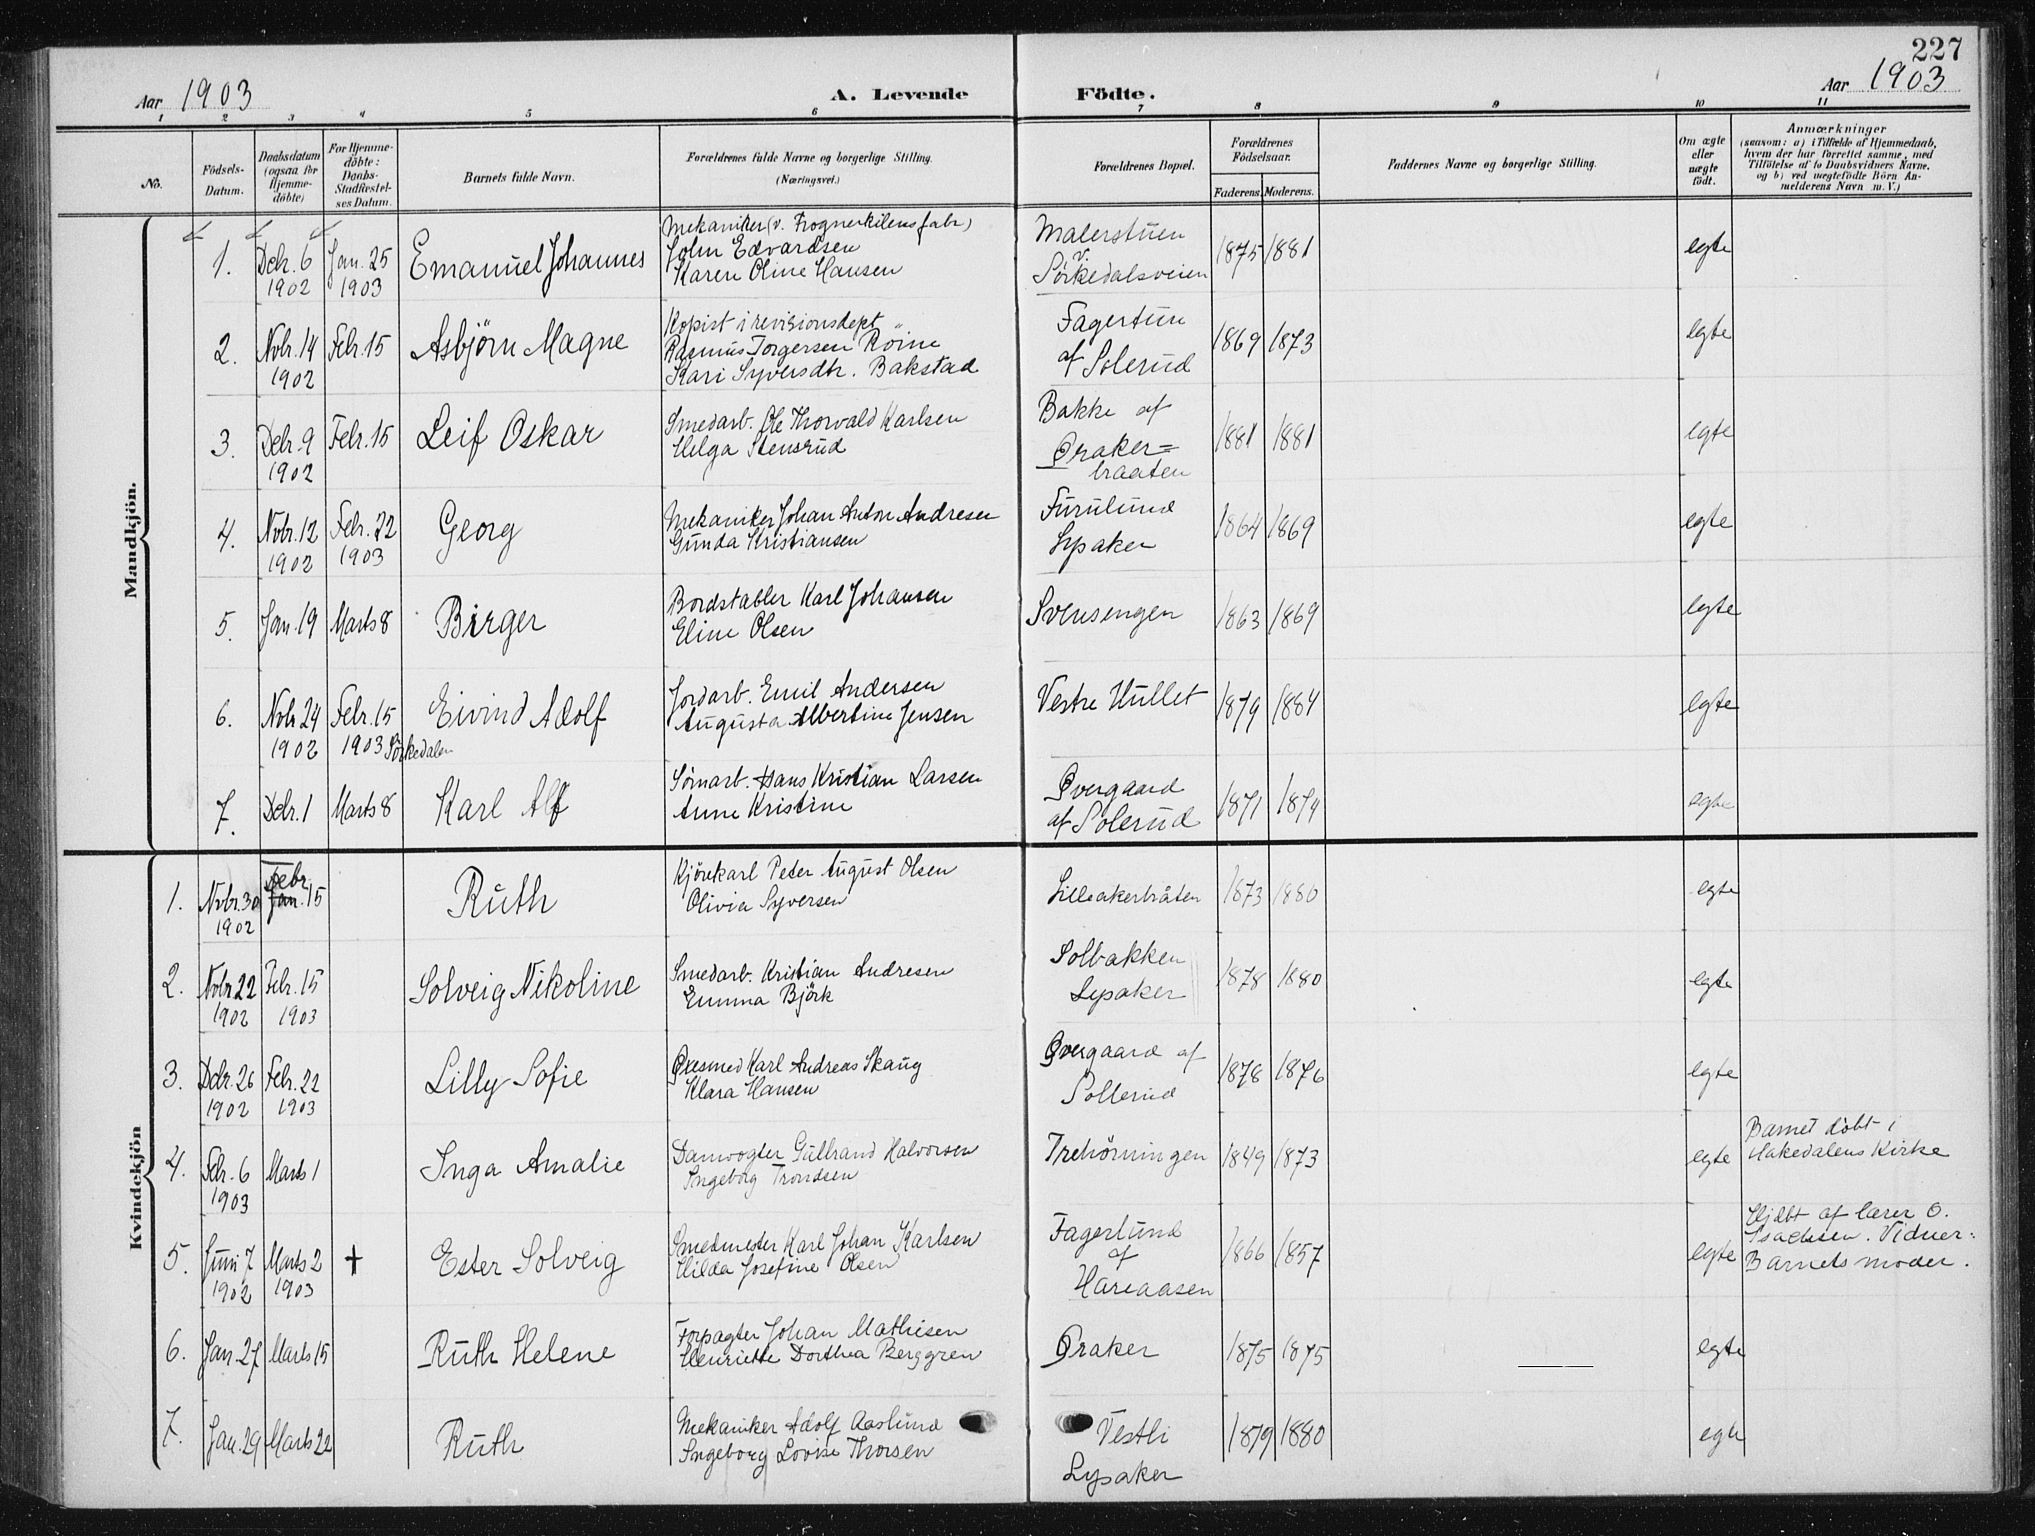 227
Aar 1903
A. Levende Födte.
Aar 1903
1 2 3 4 5 6 7 8 9 10 11
No.
Födsels-Datum.
Daabsdatum (ogsaa for Hjemme-döbte)
For Hjemme-döbte: Daabs-Stadfæstel-ses Datum.
Barnets fulde Navn.
Forældrenes fulde Navne og borgerlige Stilling.
(Næringsvei.)
Forældrenes Bopæl.
Forældrenes Födselsaar.
Faderens. Moderens.
Faddernes Navne og borgerlige Stilling.
Om ægte eller uægte födt.
Anmærkninger
(saasom: a) i Tilfælde af Hjemmedaab,
hvem der har forrettet samme, med
Tilföielse af to Daabsvidners Navne.
og b) ved uægtefödte Börn An-
melderens Navn m. V.)
Mandkjön.
1. Debr. 6 1902 Jan. 25 1903 Emanuel Johannes
Mekaniker (v. Frognerkilens fabr)
John Edvardsen
Karen Oline Hansen
Malerstuen
v. Sörkedalsveien
1875 1881 egte
2. Novbr. 14 1902 Febr. 15 Asbjörn Magne
Kopist i revisionsdept
Rasmus Torgersen Röine
Kari Syversdtr. Bakstad
Fagertun
af Solerud
1869 1873 egte
3. Debr. 9 1902 Febr. 15 Leif Oskar
Smedarb. Ole Thorvald Karlsen
Helga Stensrud
Bakke af
Öraker=
braaten
1881 1881 egte
4. Novbr. 12 1902 Febr. 22 1903 Georg
Mekaniker Johan Anton Andresen
Gunda Kristiansen
Furulund
Lysaker
1864 1869 egte
5. Jan. 19 Marts 8 Birger
Bordstabler Karl Johansen
Eline Olsen
Svensengen
1863 1869 egte
6. Novbr. 24 1902 Febr. 15 1903 Sörkedalen Eivind Adolf
Jordarb. Emil Andersen
Augusta Albertine Jensen
Vestre Hullet
1879 1884 egte
7. Debr. 1 Marts 8 Karl Alf
Hans Kristian Larsen
Anne Kristine
Övergaard
af Solerud
1871 1879 egte
Kvindekjön
1. Novbr. 30 1902 Febr. Jan. 15 Ruth
Kjörekarl Peder August Olsen
Olivia Syversen
Lilleakerbråten
1873 1880 egte
2. Novbr. 22 1902 Febr. 15 1903 Solveig Nikoline
Smedarb. Kristian Andresen
Emma Björk
Solbakken
Lysaker
1878 1880 egte
3. Debr. 26 1902 Febr. 22 1903 Lilly Sofie
Öxesmed Karl Andreas Skaug
Klara Hansen
Övergaard af
Sollerud
1878 1876 egte
4. Febr. 6 1903 Marts 1 Inga Amalie
Damvogter Gulbrand Halvorsen
Ingeborg Trondsen
Trehörningen
1849 1873 egte
Barnet döbt i
Hakedalens Kirke
5. Juni 7 1902 Marts 2 1903 + Ester Solveig
Smedmester Karl Johan Karlsen
Hilda Josefine Olsen
Fagerlund
af
Hareaasen
1866 1857 egte
Hjdbt af lærer O.
Isachsen. Vidner:
Barnets moder.
6. Jan. 27 Marts 15 Ruth Helene
Forpagter Johan Mathisen
Henriette Dorthea Berggren
Öraker
1875 1875 egte
7. Jan. 29 Marts 22 Ruth
Mekaniker Adolf Aaslund
Ingeborg Lovise Thorsen
Vestli
Lysaker
1879 1880 egte